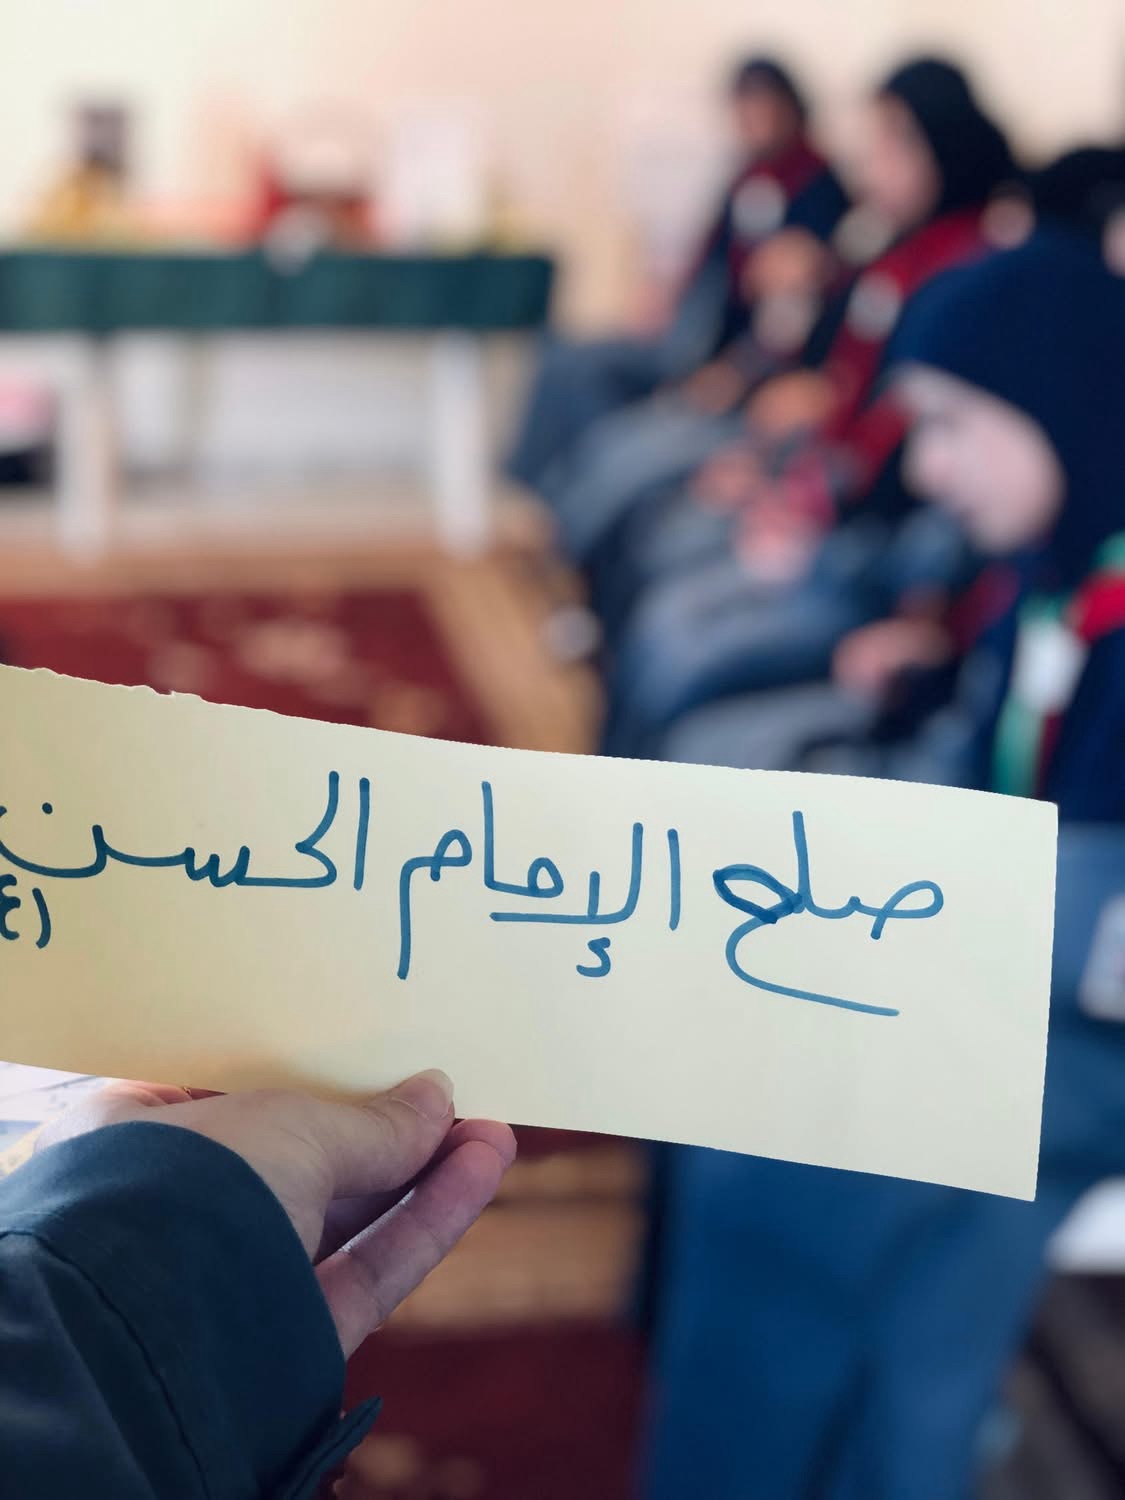 صلح الإمام الحسن (ع)